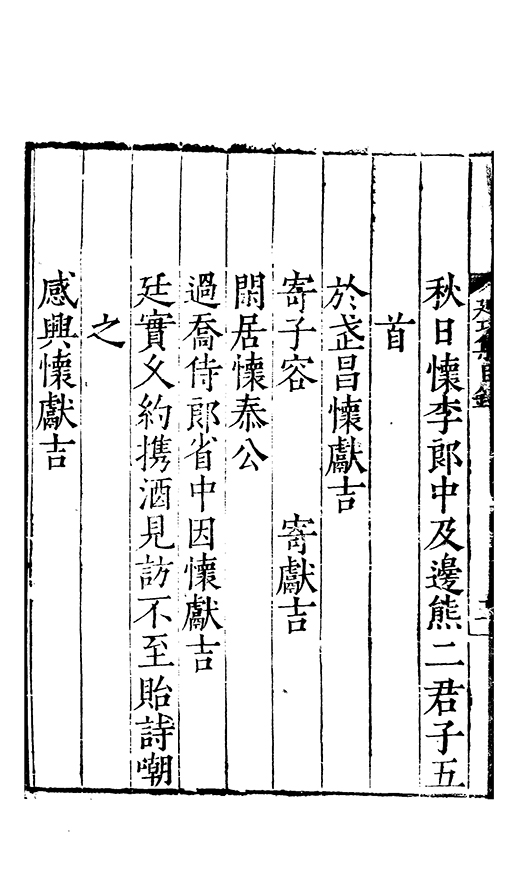 秋日懷李郎中及邊熊二君子五
首
於武昌懷獻吉
寄子容 寄獻吉
閑居懷泰公
過喬侍郎省中因懷獻吉
廷實久約携酒見訪不至貽詩嘲
之
感興懷獻吉